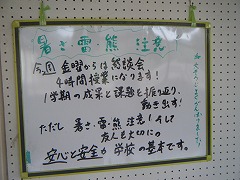 暑さ 雷 熊 注意
今週 金曜からは 懇談会
4時間授業になります！
1学期の成果と課題を振り返り、
動き出す！
ただし 暑さ・雷・熊 注意！そして
友人も大切に
安心と安全が学校の基本です。